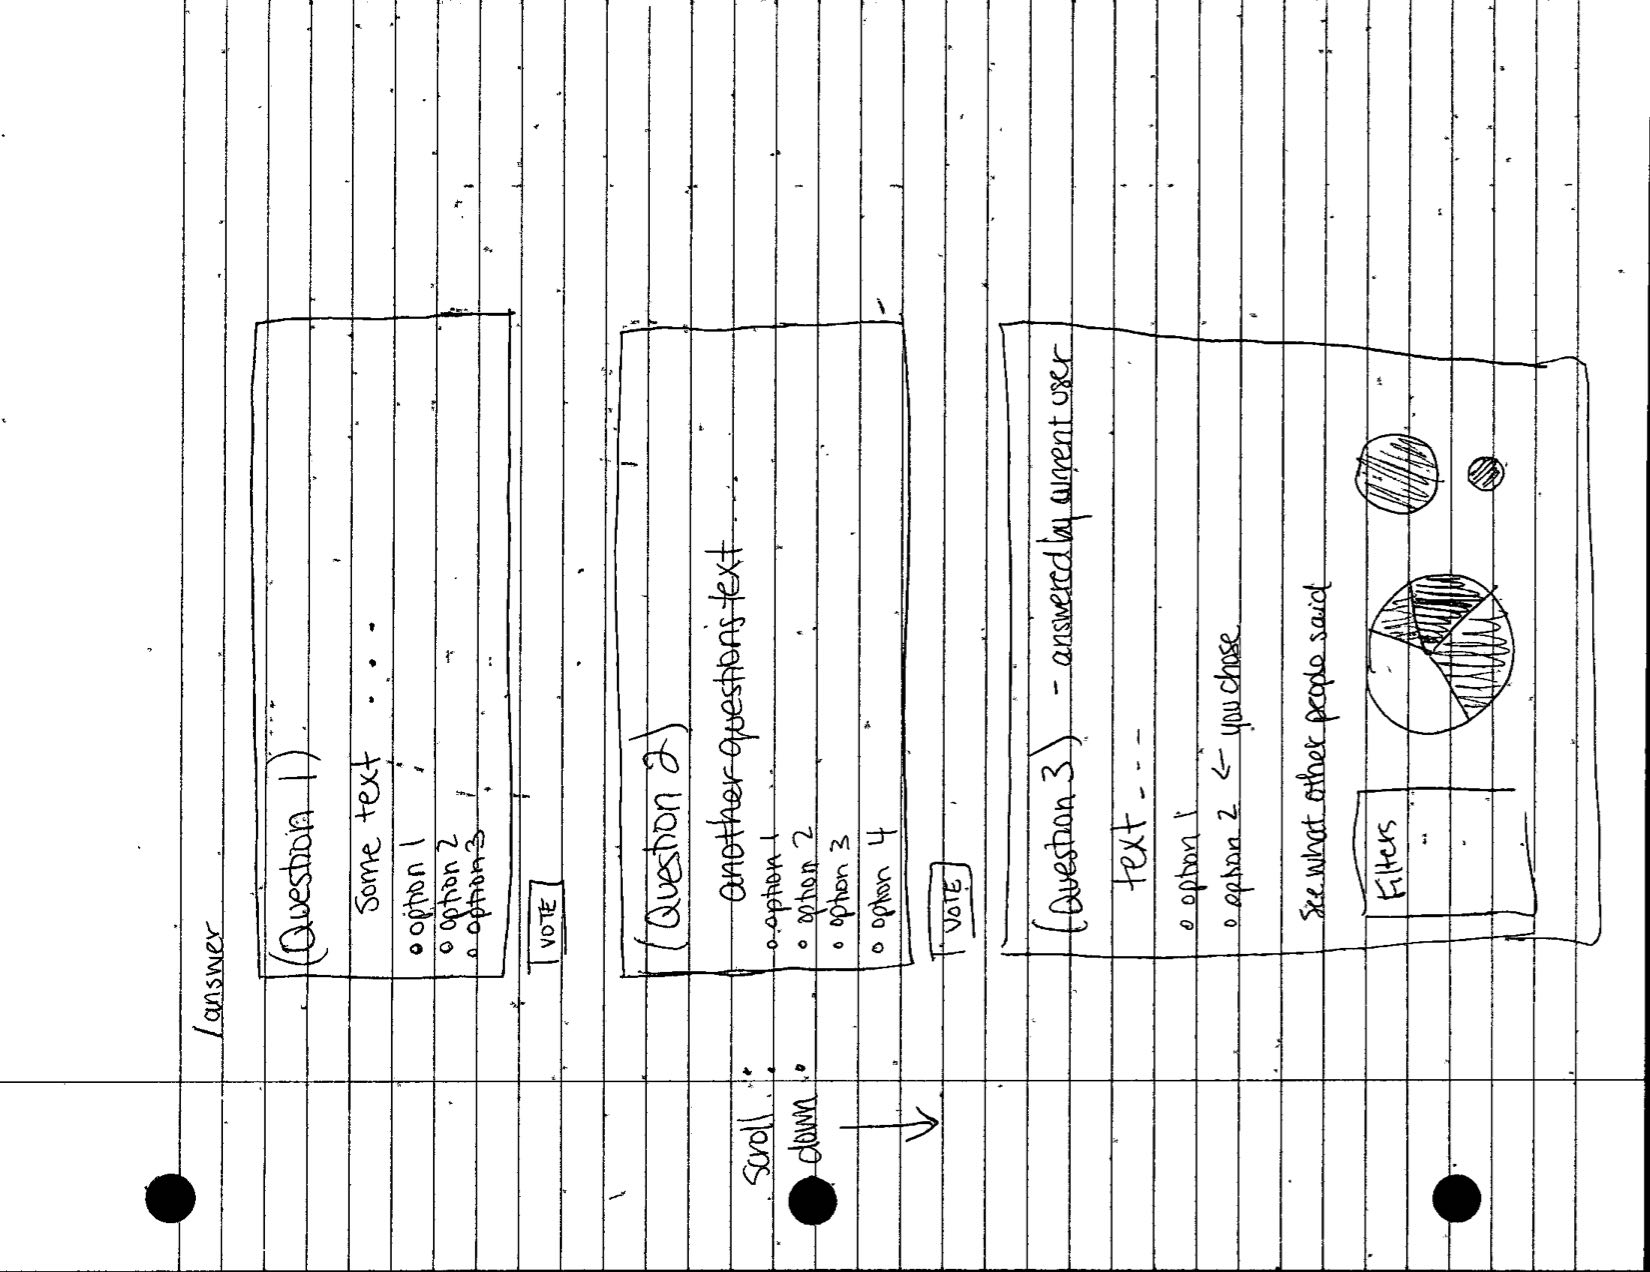 /answer
(Question 1)
Some text . . .
option 1
option 2
option 3
VOTE
(Question 2)
another questions text....
option 1
option 2
option 3
option 4
VOTE
scroll
down
(Question 3) - answered by current user
text - - -
option 1
option 2 ← you chose
See what other people said
Filters